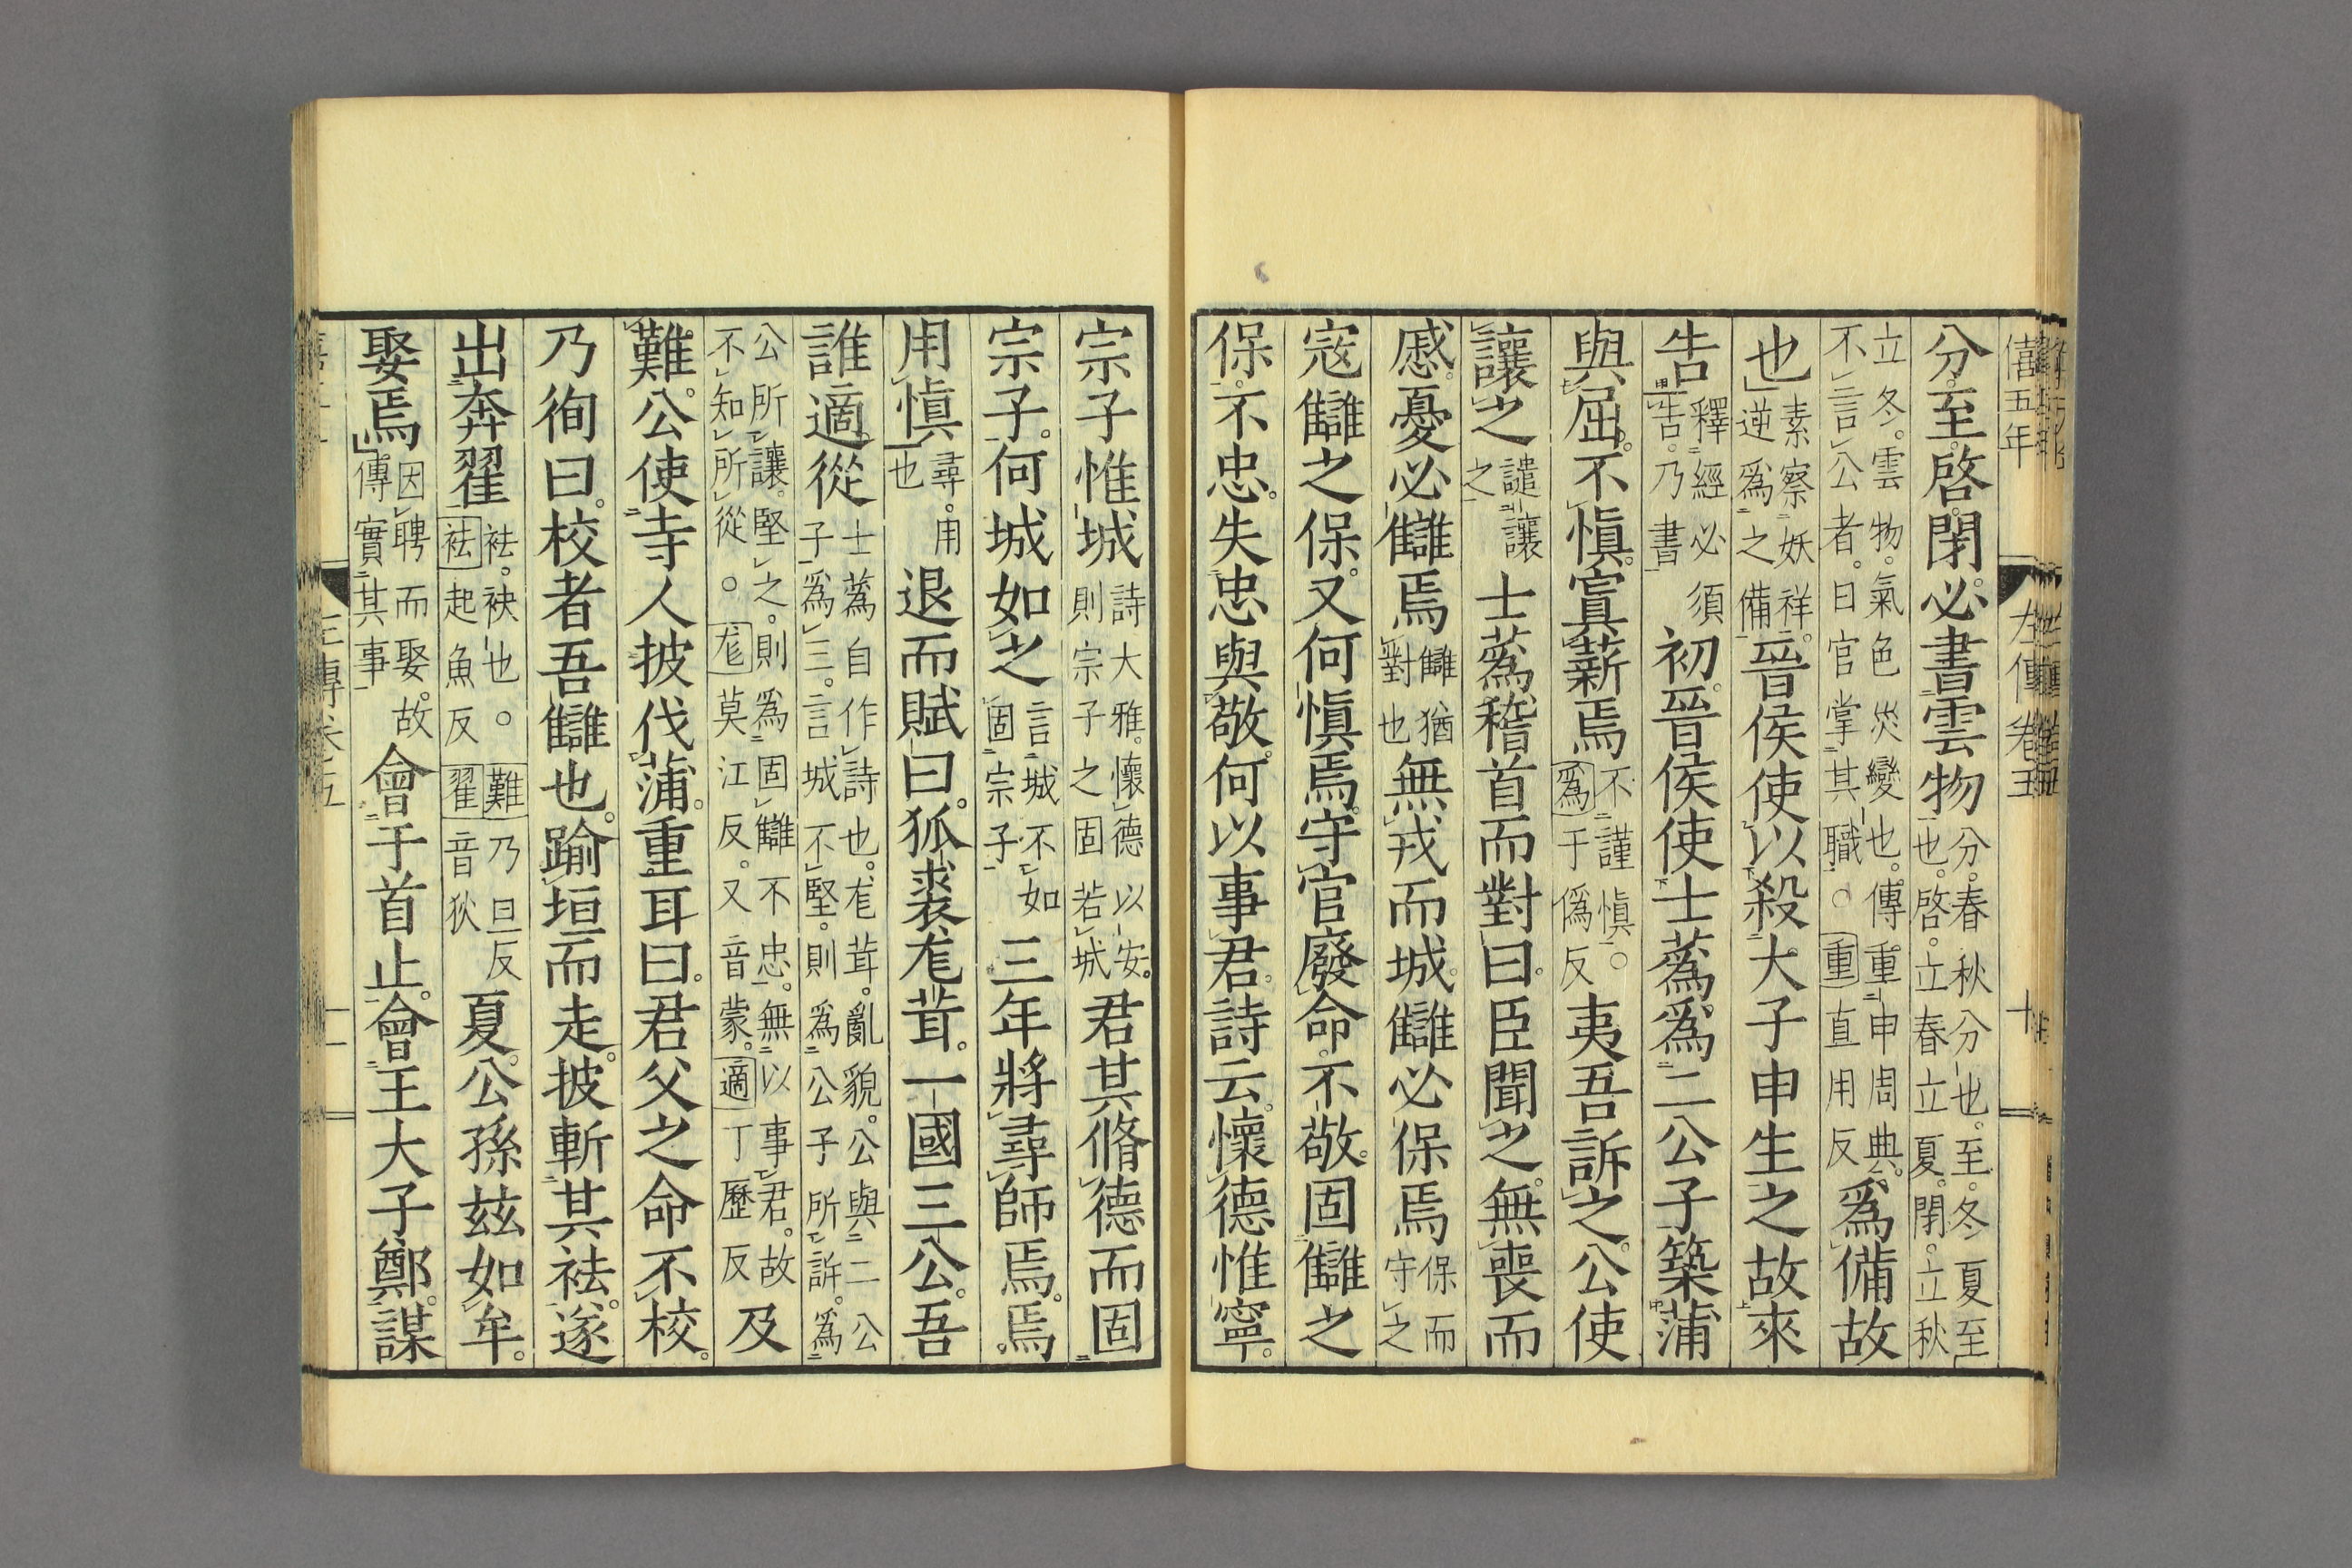 僖五年
左傳卷五
十
分。至。啓。閉。必書雲物分。春秋分也。至。冬夏至
也。啓。立春立夏。閉。立秋
立冬。雲物。氣色災變也。傳重申周典。
不言公者。日官掌其職。○重直用反爲備故
也素察妖祥。
逆爲之備晉侯使以殺大子申生之故來
告釋經必須
告。乃書初。晉侯使士蔿爲二公子築蒲
與屈。不愼。寘薪焉不謹愼。○
爲于僞反夷吾訴之。公使
讓之譴讓
之士蔿稽首而對曰。臣聞之。無喪而
慼。憂必讎焉讎猶
對也無戎而城。讎必保焉保而
守之
寇讎之保。又何愼焉。守官廢命。不敬。固讎之
保。不忠。失忠與敬。何以事君。詩云。懷德惟寧。
宗子惟城詩大雅。懷德以安。
則宗子之固若城君其脩德而固
宗子。何城如之言城不如
固宗子三年將尋師焉。焉。
用愼尋。用
也退而賦曰。狐裘尨茸。一國三公。吾
誰適。從士蔿自作詩也。尨茸。亂貌。公與二公
子爲三。言城不堅。則爲公子所訴。爲
公所讓。堅之。則爲固讎不忠。無以事君。故
不知所從。○尨莫江反。又音蒙。適丁歷反及
難。公使寺人披伐蒲。重耳曰。君父之命不校。
乃徇曰。校者吾讎也。踰垣而走。披斬其袪。遂
出奔翟袪。袂也。○難乃旦反
袪起魚反翟音狄夏。公孫茲如牟。
娶焉因聘而娶。故
傳實其事會于首止。會王大子鄭。謀